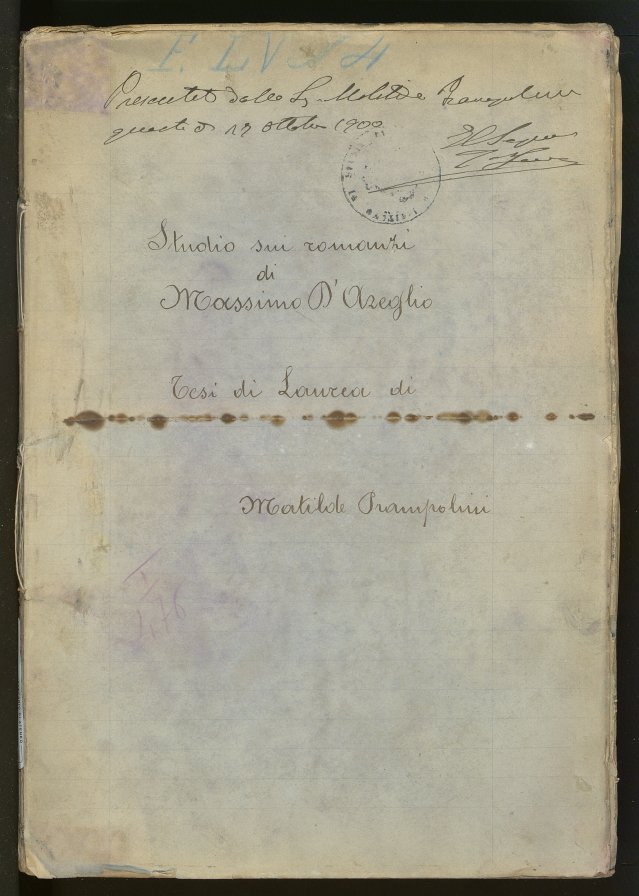 F. LV
Presentata dalla S. Matilde Prampolini
questo dì 19 Ottobre 1900
Il Segr
Studio sui romanzi
di
Massimo D'Azeglio
Tesi di Laurea di
Matilde Prampolini